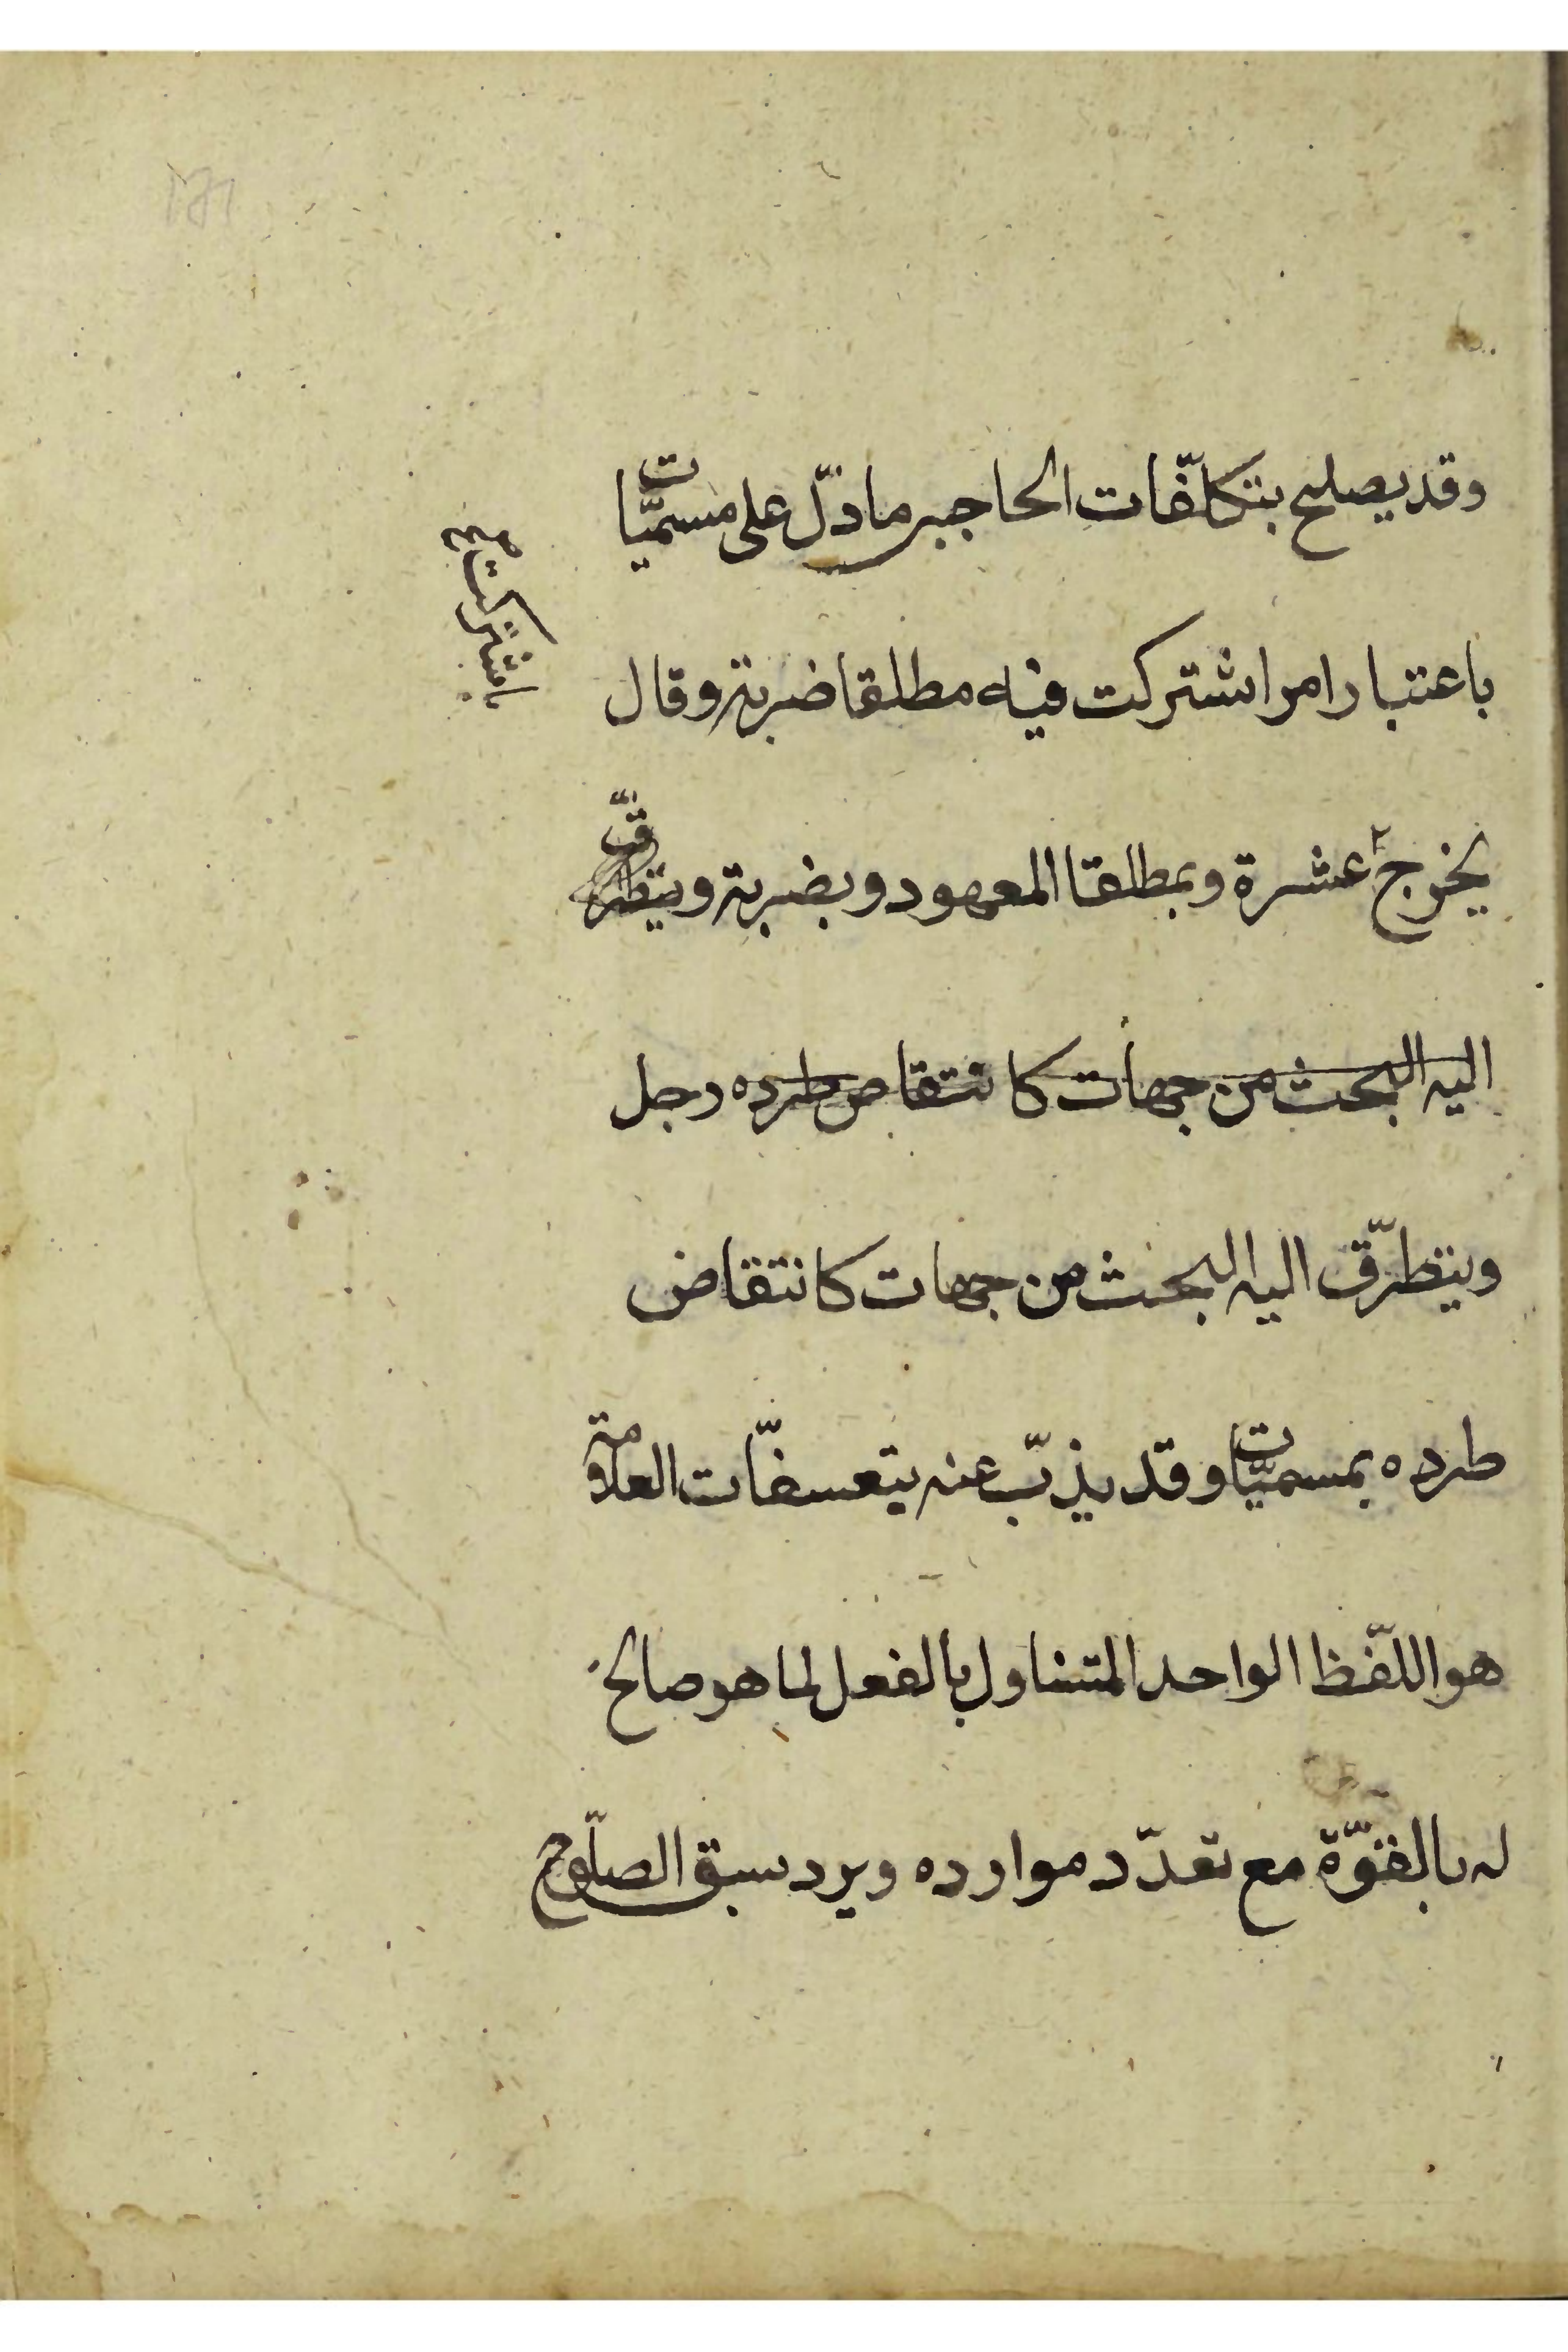 وقد يصلح بتكلّفات الحاجبى ما دلّ على مسميّات
باعتبار امر اشتركت فيه مطلقا ضربة وقال
باشتركت
يخرج عشرة وبمطلقا المعهود وبضربة ويتطرّق
اليه البحث من جهات كانتقاص طرده رجل
ويتطرّق اليه البحث من جهات كانتقاض
طرده بمسميّات وقد يذبّ عنه بتعسفّات العلامة
هو اللّفظ الواحد المتناول بالفعل لما هو صالح
له بالقوّة مع تعدّد موارده ويرد سبق الصلّوح